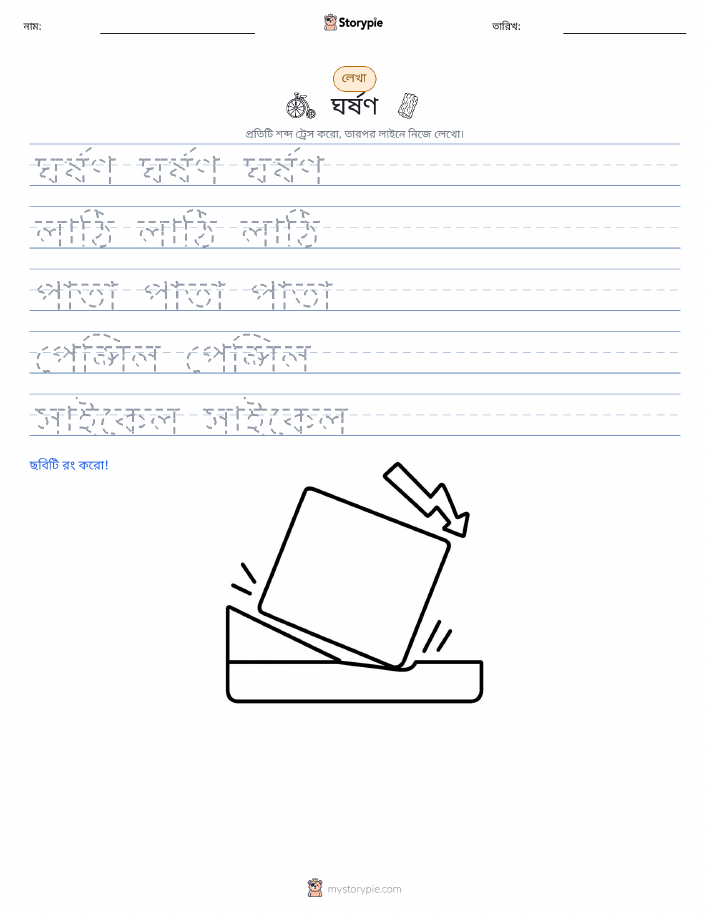 নাম:
Storypie
তারিখ:
লেখা
ঘর্ষণ
প্রতিটি শব্দ ট্রেস করো, তারপর লাইনে নিজে লেখো।
ঘর্ষণ ঘর্ষণ ঘর্ষণ
লাঠি লাঠি লাঠি
পাতা পাতা পাতা
পেন্সিল পেন্সিল
সাইকেল সাইকেল
ছবিটি রং করো!
mystorypie.com